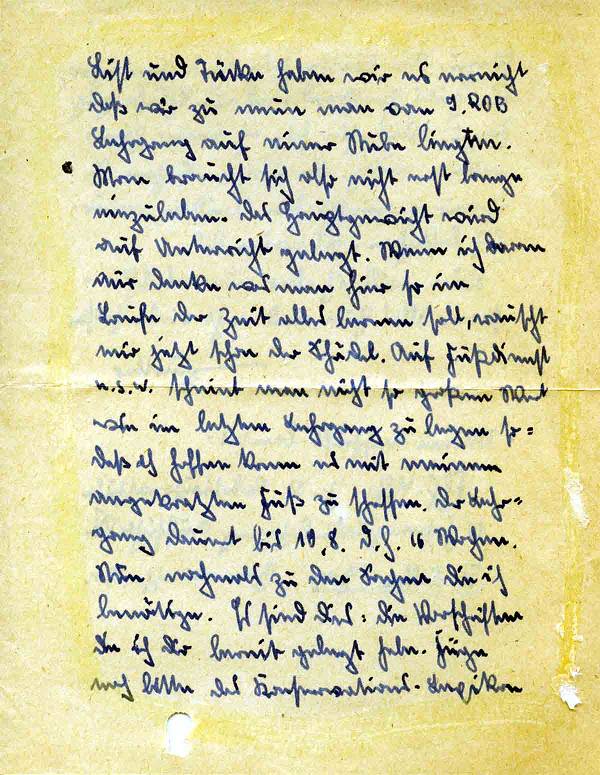 List und Tücke haben wir es erreicht
daß wir zu neun man vom 9. ROB
Lehrgang auf einer Stube liegen.
Man braucht sich also nicht erst lange
einzuleben. Das Hauptgewicht wird
auf Unterricht gelegt. Wenn ich daran
nur denke was man hier so im
Laufe der Zeit alles lernen soll, rauscht
mir jetzt schon der Schädel. Auf Fußdienst
u.s.w. scheint man nicht so großen Wert
wie im letzten Lehrgang zu legen so=
daß ich hoffen kann es mit meinem
angekratzten Fuß zu schaffen. Der Lehr=
gang dauert bis 19.8. d.h. 16 Wochen.
Nun nochmals zu den Sachen die ich
benötige. Es sind das: die Vorschriften
die ich dir bereit gelegt habe. Füge
noch bitte das Konservations-Lexikon